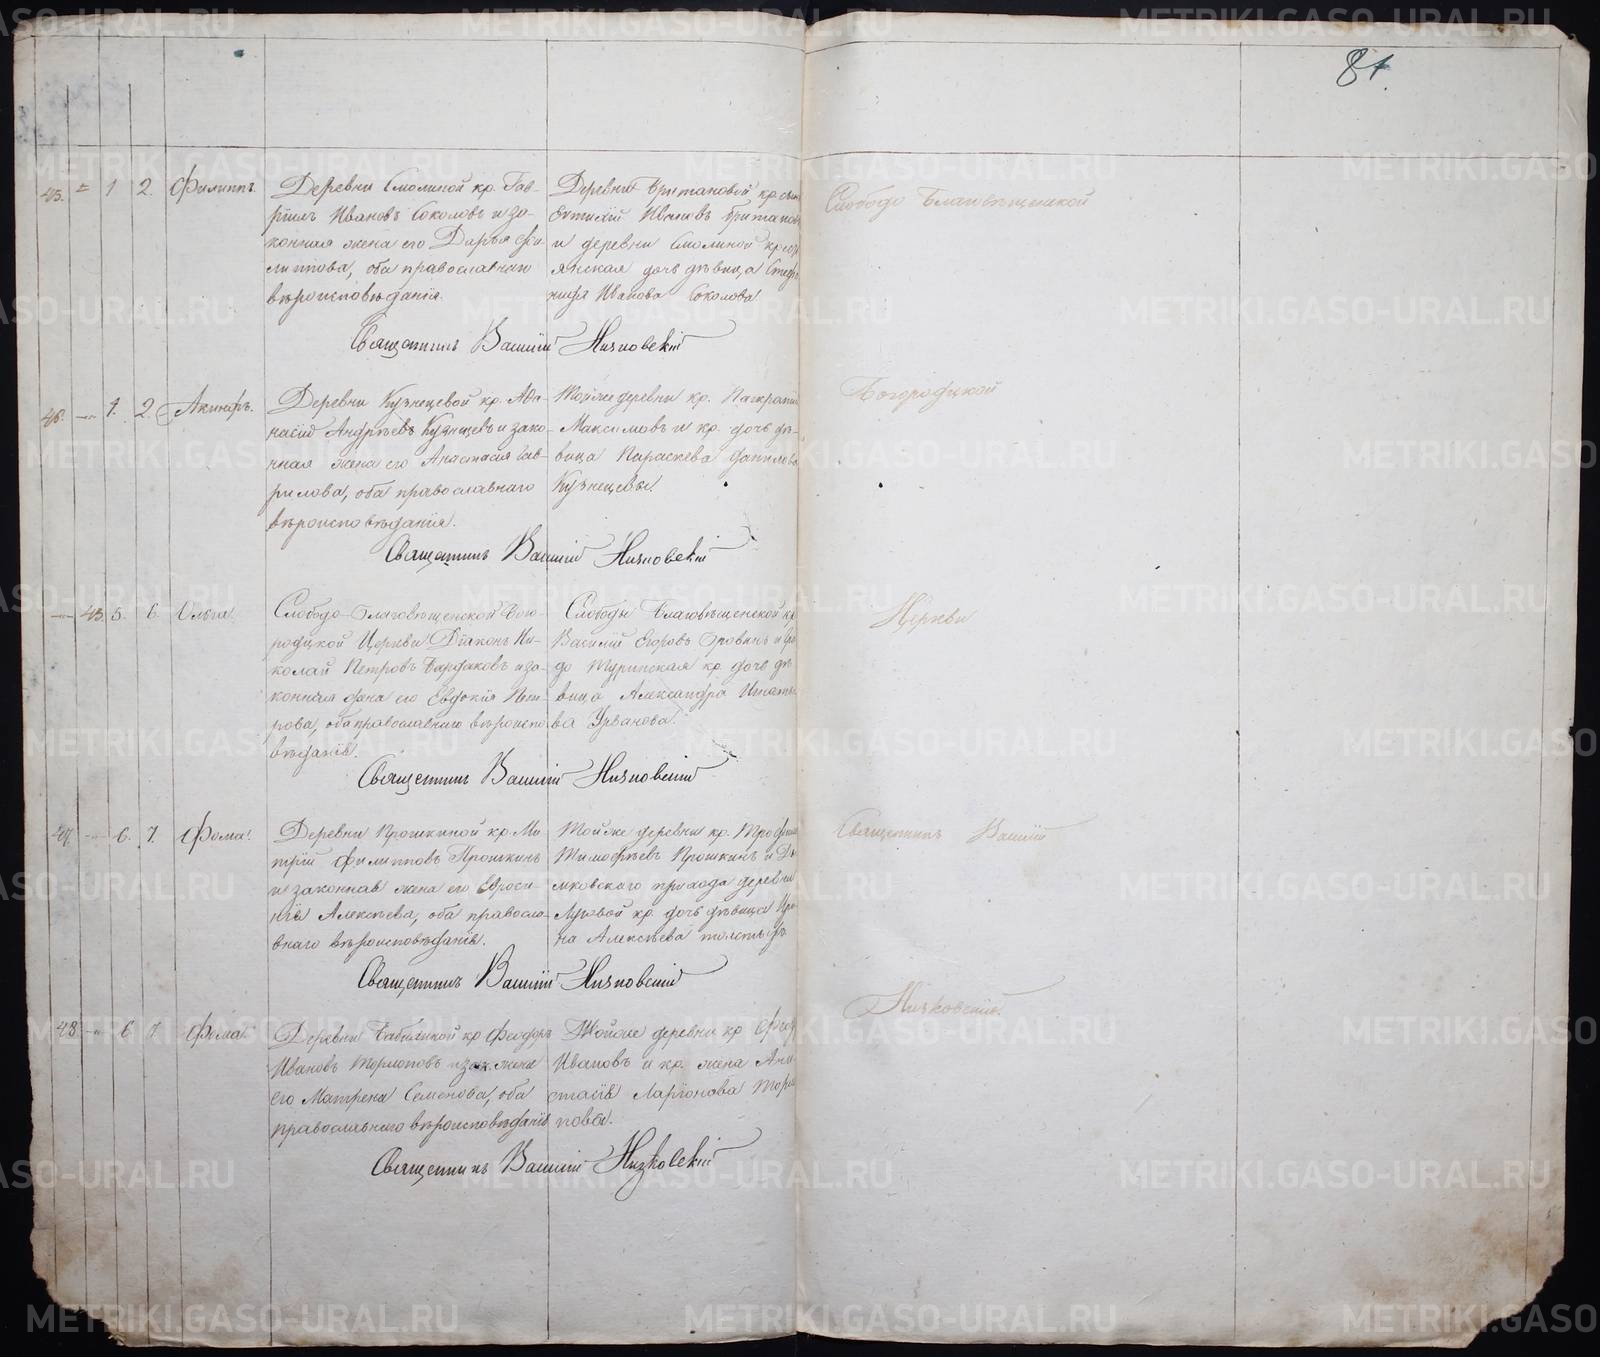 81.
45. 1 2 Филиппъ.
Деревни Смолиной кр. Гав-
рiилъ Ивановъ Соколовъ и за-
конная жена его Дарья Фи-
липпова, оба православнаго
вѣроисповѣданiя.
Деревни Британовой кр.
Евтихiй Ивановъ Британовъ
и деревни Смолиной
дочь дѣвица
Иванова Соколова.
Священникъ Василiй Низковскiй
46. 1. 2. Акинфъ.
Деревни Кузнецевой кр. Афа-
насiй Андрѣевъ Кузнецевъ и зако-
нная жена его Анастасiя Гав-
рилова, оба православнаго
вѣроисповѣданiя.
Той же деревни кр. Панкратiй
Максимовъ и кр. дочь дѣ-
вица Параскева Данилова
Кузнецевы.
Священникъ Василiй Низковскiй
43. 5. 6. Ольга.
Слободо-Благовѣщенской Бого-
родицкой Церкви Дiаконъ Ни-
колай Петровъ Бардаковъ и за-
конная жена его Евдокiя Пет-
рова, оба православнаго вѣроиспо-
вѣданiя.
Слободы Благовѣщенской кр.
Василiй Егоровъ и
Туринская кр. дочь дѣ-
вица Александра Игнать-
ва Урванова.
Священникъ Василiй Низковскiй
47. 6. 7. Фома.
Деревни Прошкиной кр. Ми-
трiй Филипповъ Прошкинъ
и законная жена его Евроси-
нiя Алексѣева, оба правосла-
внаго вѣроисповѣданiя.
Той же деревни кр. Трофимъ
Тимофѣевъ Прошкинъ и
прихода деревни
Луговой кр. дочь дѣвица Ири-
на Алексѣева
Священникъ Василiй Низковскiй
48 6 7 Фома.
Деревни Бабиллкой кр Феодоръ
Ивановъ Тормоповъ и зак. жена
его Матрена Семенова, оба
православнаго вѣроисповѣданiя
Той же деревни кр
Ивановъ и кр. жена Ана-
стасiя Ларiонова
повы.
Священникъ Василiй Низковскiй
Слободо Благовѣщенской
Богородицкой
Церкви
Священникъ Василiй
Низковскiй.
METRIKI.GASO-URAL.RU